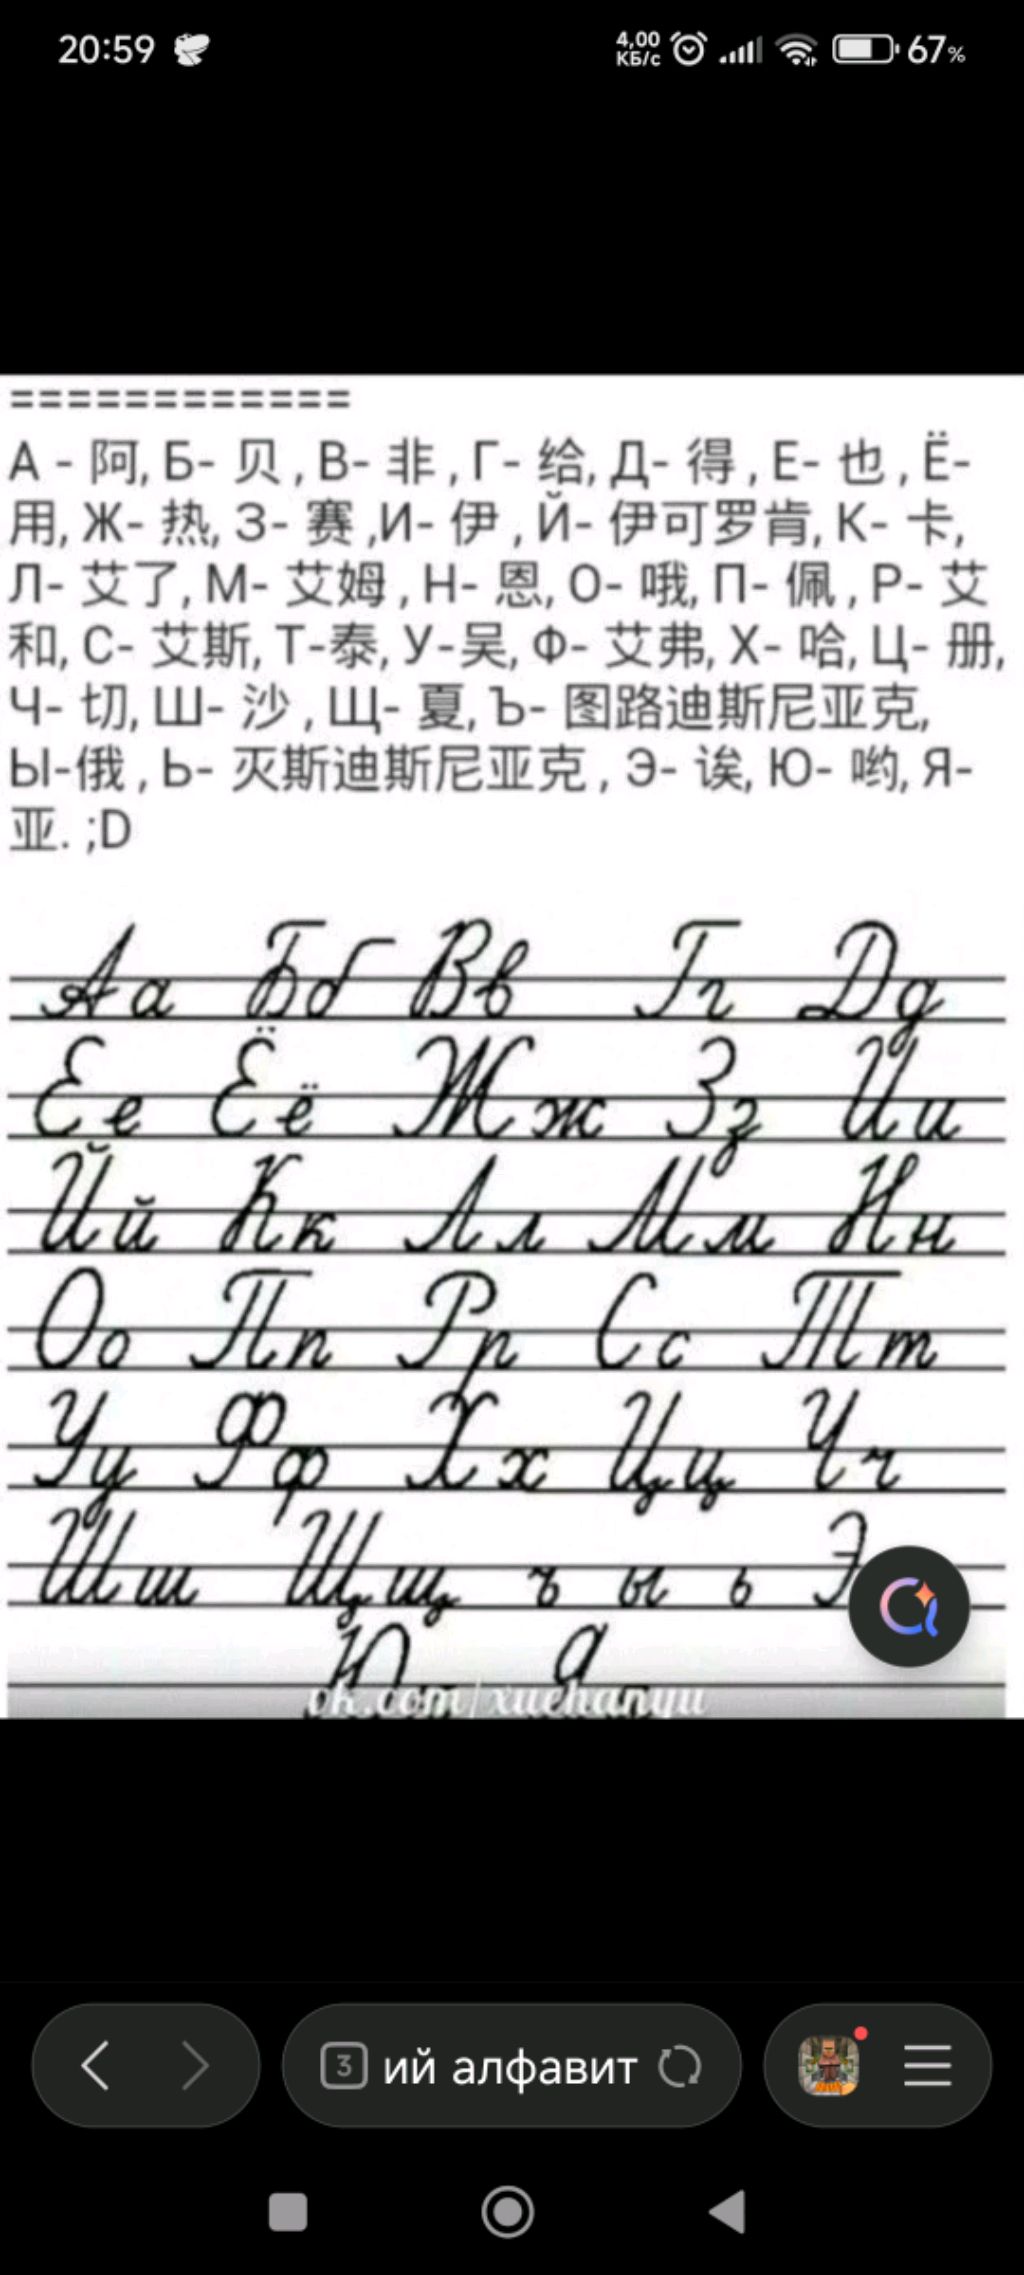 20:59
4,00 КБ/с 67%
============
А - 阿, Б- 贝 , В- 非 , Г- 给, Д- 得 , Е- 也 , Ё-
用, Ж- 热, З- 赛 ,И- 伊 , Й- 伊可罗肯, К- 卡,
Л- 艾了, М- 艾姆 , Н- 恩, О- 哦, П- 佩 , Р- 艾
和, С- 艾斯, Т-泰, У-吴, Ф- 艾弗, Х- 哈, Ц- 册,
Ч- 切, Ш- 沙 , Щ- 夏, Ъ- 图路迪斯尼亚克,
Ы-俄 , Ь- 灭斯迪斯尼亚克 , Э- 诶, Ю- 哟, Я-
亚. ;D
Аа Бб Вв Гг Дд
Ее Ёё Жж Зз Ии
Йй Кк Лл Мм Нн
Оо Пп Рр Сс Тт
Уу Фф Хх Цц Чч
Шш Щщ ъ ы ь Э
Ю Я
vk.com/xuehanyu
3 ий алфавит